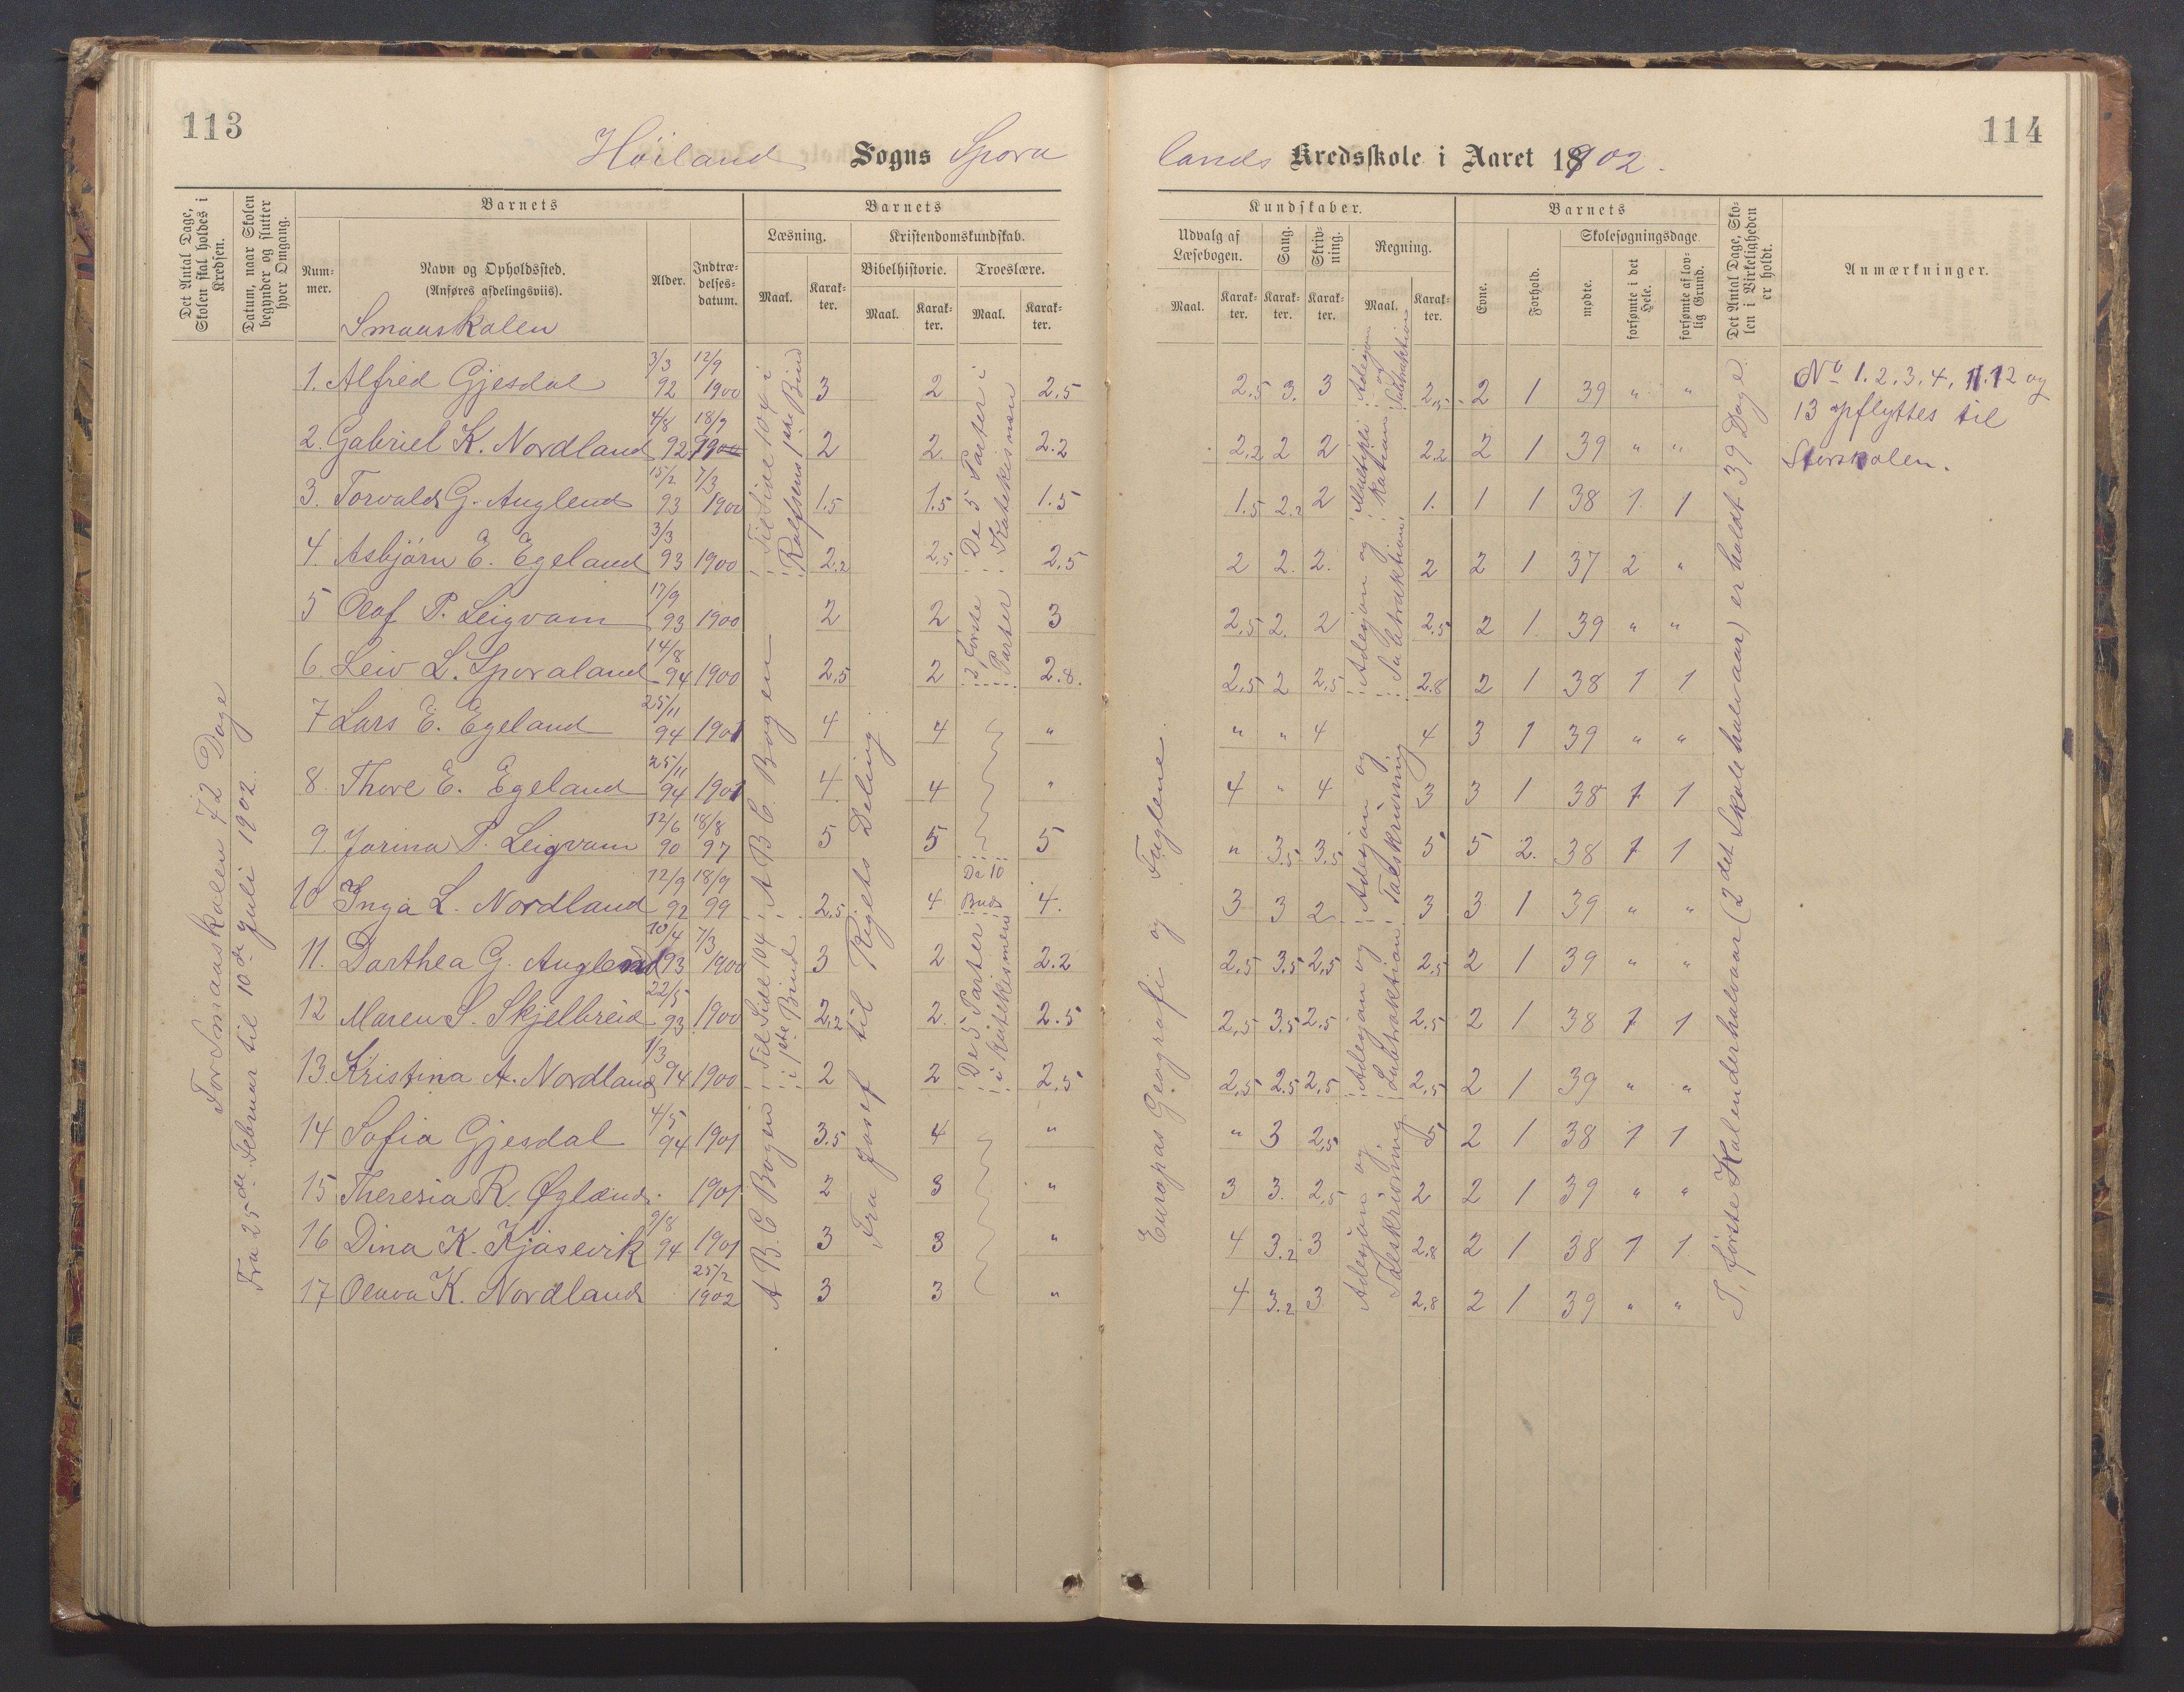 113
114
Höiland Sogns Spora
lands Kredsskole i Aaret 1902.
Det Antal Dage, Skolen skal holdes i Kredsen.
Datum, naar Skolen begynder og slutter hver Omgang.
Barnets
Barnets
Num-mer.
Navn og Opholdssted.
(Anføres afdelingsviis).
Alder.
Indtræ-delses-datum.
Læsning.
Kristendomskundskab.
Bibelhistorie.
Troeslære.
Maal.
Karak-ter.
Maal.
Karak-ter.
Maal.
Karak-ter.
Kundskaber.
Udvalg af Læsebogen.
Sang.
Skriv-ning.
Regning.
Maal.
Karak-ter.
Karak-ter.
Karak-ter.
Maal.
Karak-ter.
Barnets
Evne.
Forhold.
Skolesøgningsdage.
mødte.
forsømte i det Hele.
forsømte af lov-lig Grund.
Det Antal Dage, Sko-len i Virkeligheden er holdt.
Anmærkninger.
Smaaskolen
For Smaaskolen 72 Dage
Fra 25de Februar til 10de Juli 1902.
1. Alfred Gjesdal 3/3 92 12/9 1900 3 2 2.5 2.5 3. 3 2.5 2 1 39 " "
2. Gabriel K. Nordland 4/8 92 18/9 1900 2 2. 2.2 2.2 2 2 2.2 2 1 39 " "
3. Torvald G. Auglend 15/2 93 7/3 1900 1.5 1.5 1.5 1.5 2.2 2 1. 1 1 38 1 1
4. Asbjörn E. Egeland 3/3 93 1900 2.2 2.5 2.5 2 2. 2. 2 2 1 37 2 "
5 Olaf P. Leigvam 17/9 93 1900 2 2 3 2.5 2. 2 2.5 2 1 39 " "
6. Leiv L. Sporaland 14/8 94 1900 2.5 2 2.8. 2.5 2 2.5 2.8 2 1 38 1 1
7 Lars E. Egeland 25/11 94 1901 4 4 " " " 4 4 3 1 39 " "
8. Thore E. Egeland 25/11 94 1901 4 4 " 4 " 4 3 3 1 38 1 1
9. Jorina P. Leigvam 12/6 90 18/8 97 5 5 5 " 3.5 3.5 5 5 2. 38 1 1
10 Inga L. Nordland 12/9 92 18/9 99 2.5 4 4. 3 3 2 3 3 1 39 " "
11. Darthea G. Auglend 10/4 93 7/3 1900 3 2 2.2 2.5 3.5 2.5 2.5 2 1 39 " "
12 Maren S. Skjelbreid 22/5 93 1900 2.2 2. 2.5 2.5 3.5 2.5 2.5 2 1 38 1 1
13. Kristina A. Nordland 1/3 94 1900 2 2 2.5 2.5 2.5 2.5 2.5 2 1 39 " "
14 Sofia Gjesdal 4/5 94 1901 3.5 4 " " 3 2.5 2 1 38 1 1
15 Theresia R. Øgland. 1901 2 3 " 3 3. 2.5 2 2 1 39 " "
16 Dina K. Kjosevik 9/8 94 1901 3 3 " 4 3.2 3 2.8 2 1 38 1 1
17 Olava K. Nordland 25/2 1902 3 3 " 4 3.2 3 2.8 2 1 39 " "
Til Side 104 i
Rolfsens 1ste Bind
A B C Bogen
Til Side 104
i 1ste Bind
A B C Bogen
Fra Josef til Rigets Deling
De 5 Parter i
Katekismen
2 første
Parter
De 10
Bud
De 5 Parter
i Katekismen
Europas Geografi og Fuglene.
Multipli-kation
Adisjon og Subtraktion
Adisjon og
Subtraktion
Adisjon og
Talskrivning
Adisjon og
Subtraktion
Adisjon og
Talskrivning
I første Kalenderhalvaar (2det Skolehalvaar) er holdt 39 Dage.
No 1.2.3.4, 11.12 og
13 opflyttes til
Storskolen.